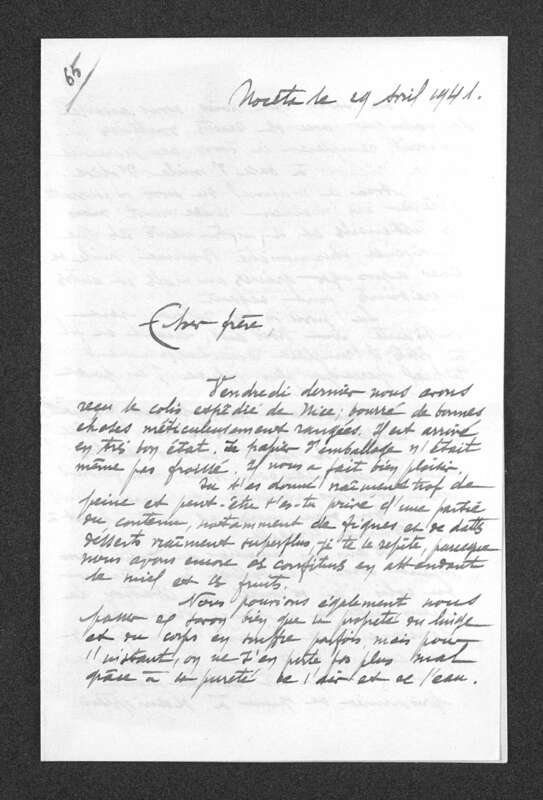 65
Noceta le 29 Avril 1941.
Cher frère
Vendredi dernier nous avons
reçu le colis expédié de Nice, bourré de bonnes
choses méticuleusement rangées. Il est arrivé
en très bon état. Le papier d'emballage n'était
même pas froissé. Il nous a fait bien plaisir.
Tu t'es donné vraiment trop de
peine et peut-être t'es-tu privé d'une partie
du contenu, notamment de figues et de dattes
desserts vraiment superflus, je te le répète, parceque
nous avons encore de confitures en attendant
le miel et les fruits.
Nous pouvions également nous
passer de savon bien que la propreté du linge
et du corps en souffre parfois, mais pour
l'instant, on ne s'en porte pas plus mal
grâce à la pureté de l'air et de l'eau.